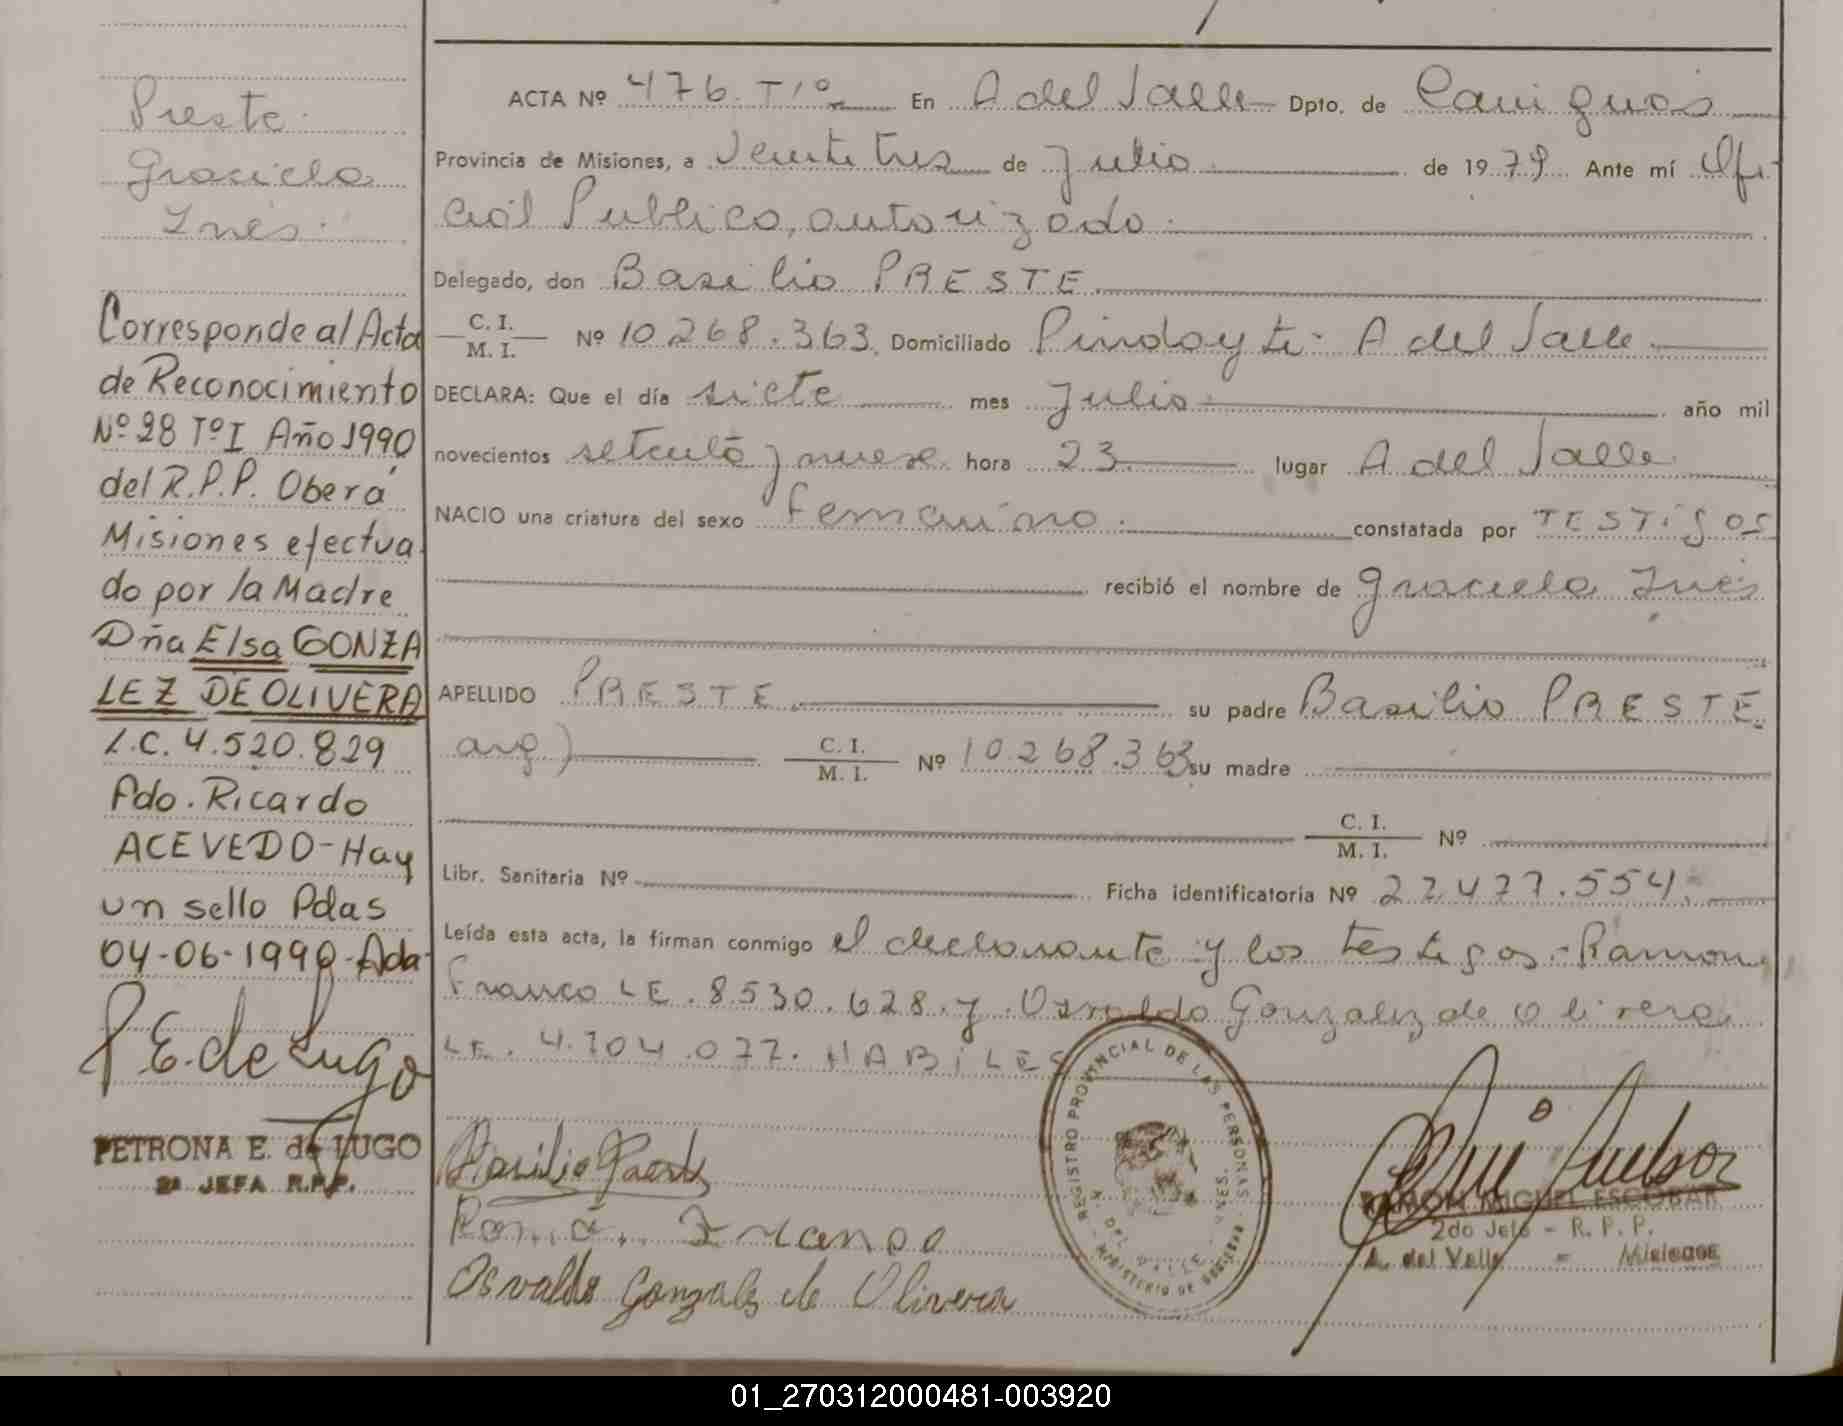 Preste
Graciela
Inés.
Corresponde al Acta
de Reconocimiento
Nº 28 Tº I Año 1990
del R.P.P. Oberá
Misiones efectua
do por la Madre
Dña Elsa GONZA
LEZ DE OLIVERA
L.C. 4.520.829
Fdo. Ricardo
ACEVEDO - Hay
un sello Pdas
04-06-1990 - Ada
P E. de Lugo
PETRONA E. de LUGO
2ª JEFA R.P.P.
ACTA Nº 476. Tº En A del Valle Dpto. de Cainguás
Provincia de Misiones, a Veintitres de Julio de 1979 Ante mí Ofi-
cial Publico, autorizado.
Delegado, don Basilio PRESTE
C. I. M. I. Nº 10.268.363. Domiciliado Pindayti - A del Valle
DECLARA: Que el día siete mes Julio año mil
novecientos setenta y nueve hora 23 lugar A del Valle
NACIO una criatura del sexo Femenino. constatada por TESTIGOS
recibió el nombre de Graciela Inés
APELLIDO PRESTE su padre Basilio PRESTE
arg) C. I. M. I. Nº 10.268.363 su madre
C. I. M. I. Nº
Libr. Sanitaria Nº Ficha identificatoria Nº 27.477.554.
Leída esta acta, la firman conmigo el declarante y los testigos - Ramon
Franco LE. 8.530.628. y Osvaldo Gonzalez de Olivera
LE. 4.704.077. HABILES
REGISTRO PROVINCIAL DE LAS PERSONAS
MINISTERIO DE GOBIERNO
Basilio
Franco
Osvaldo Gonzalez de Olivera
RAMON MIGUEL ESCOBAR
2do Jefe - R. P. P.
A. del Valle - Misiones
01_270312000481-003920